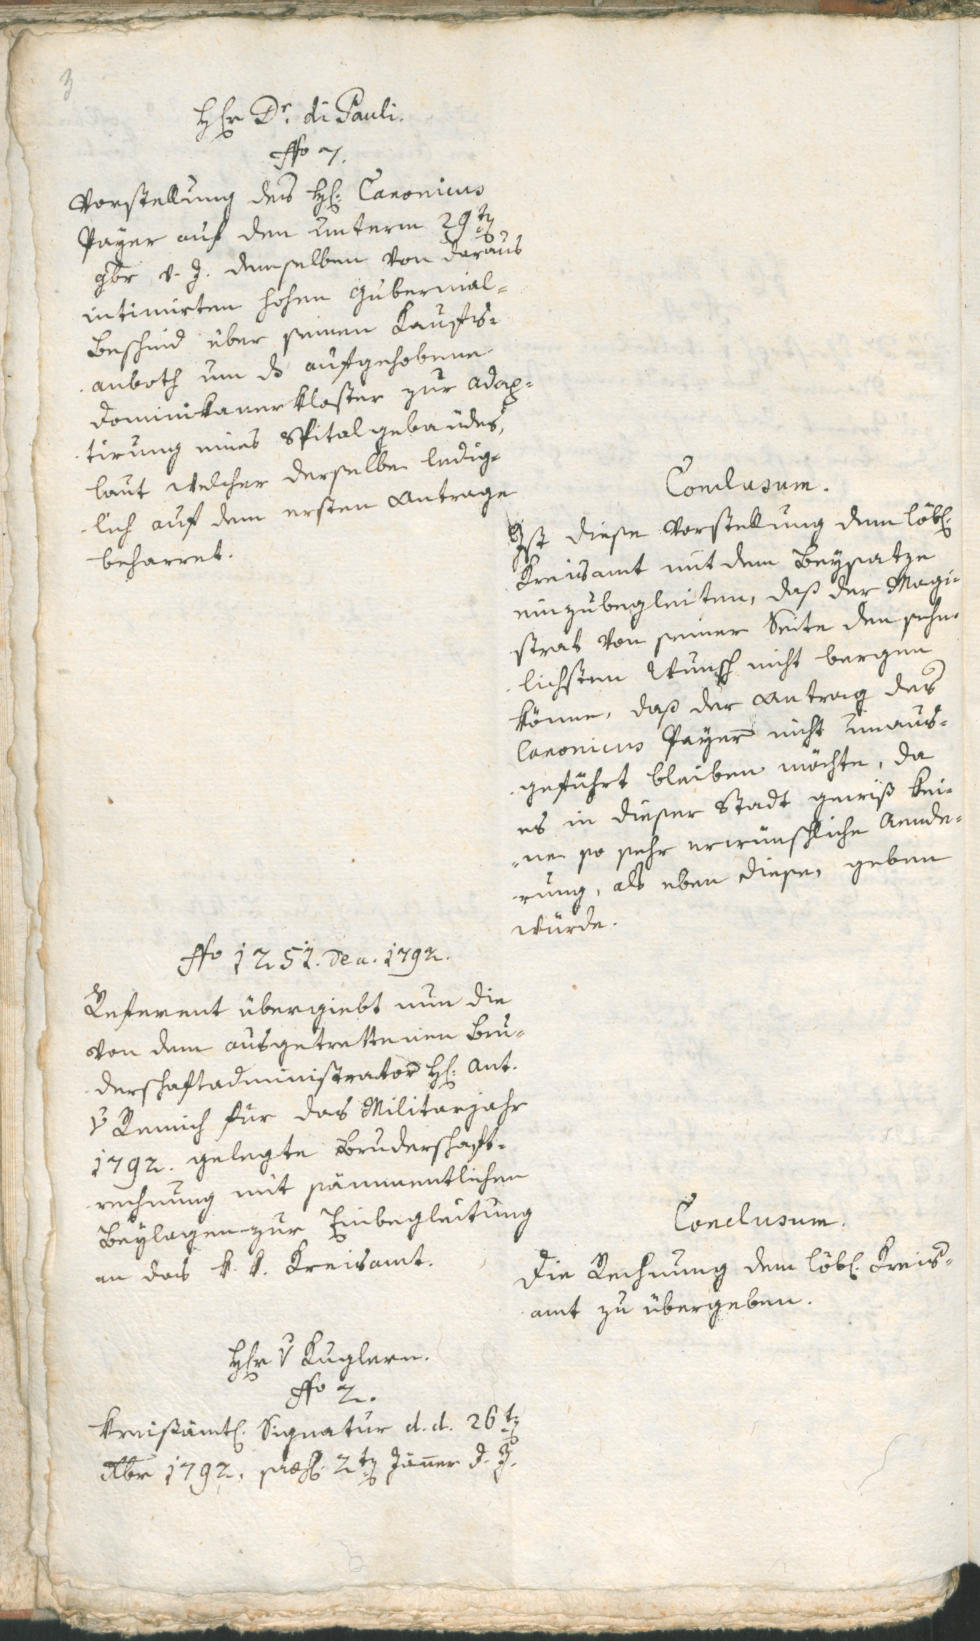 3
Hr Dr. di Pauli.
No 7.
Vorstellung des H: Canonicus
Payer auf den unterm 29ten
9br v. J. demselben von daraus
intimirten hohen Gubernial-
Bescheid über seinen Kaufs-
anboth um ds aufgehobene
Dominikanerkloster zur Adap-
tirung eines Spitalgebäudes,
laut welcher derselbe ledig-
lich auf dem ersten Antrage
beharret.
Conclusum.
Ist diese Vorstellung dem löbl.
Kreisamt mit dem Beysatze
einzubegleiten, daß der Magi-
strat von seiner Seite den sehn-
lichsten Wunsch nicht bergen
könne, daß der Antrag des
Canonicus Payer nicht unaus-
geführt bleiben möchte, da
es in dieser Stadt gewiß kei-
ne so sehr erwünschliche Aende-
rung, als eben diese, geben
würde.
No 1251. de a. 1792.
Referent übergiebt nun die
von dem ausgetrettenen Bru-
derschaftadministrator H: Ant.
v Remich für das Militarjahr
1792. gelegte Bruderschaft-
rechnung mit sämmentlichen
Beylagen zur Einbegleitung
an das k. k. Kreisamt.
Conclusum.
Die Rechnung dem löbl. Kreis-
amt zu übergeben.
Hr v Kuglern.
No 2.
Kreisämtl. Signatur d. d. 26ten
Xbr 1792, praes. 2ten Jänner d. J.